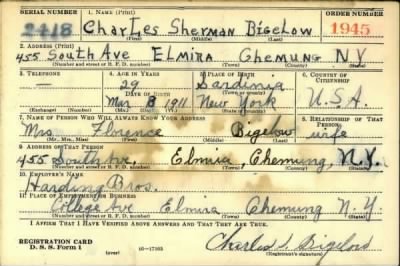 SERIAL NUMBER 1. NAME (Print) ORDER NUMBER
2418 Charles Sherman Bigelow 1945
(First) (Middle) (Last)
2. ADDRESS (Print)
455 South Ave Elmira Chemung N Y
(Number and street or R. F. D. number) (Town) (County) (State)
3. TELEPHONE 4. AGE IN YEARS 5. PLACE OF BIRTH 6. COUNTRY OF CITIZENSHIP
— 29 Sardinia
DATE OF BIRTH
Mar 8 1911 New York U.S.A.
(Exchange) (Number) (Mo.) (Day) (Yr.) (State or country)
7. NAME OF PERSON WHO WILL ALWAYS KNOW YOUR ADDRESS 8. RELATIONSHIP OF THAT PERSON
Mrs. Florence Bigelow wife
(Mr., Mrs., Miss) (First) (Middle) (Last)
9. ADDRESS OF THAT PERSON
455 South Ave, Elmira, Chemung, N.Y.
(Number and street or R. F. D. number) (Town) (County) (State)
10. EMPLOYER'S NAME
Harding Bros.
11. PLACE OF EMPLOYMENT OR BUSINESS
College Ave Elmira Chemung N.Y.
(Number and street or R. F. D. number) (Town) (County) (State)
I AFFIRM THAT I HAVE VERIFIED ABOVE ANSWERS AND THAT THEY ARE TRUE.
REGISTRATION CARD
D. S. S. Form 1 (over) 16—17105 Charles S. Bigelow
(Registrant's signature)